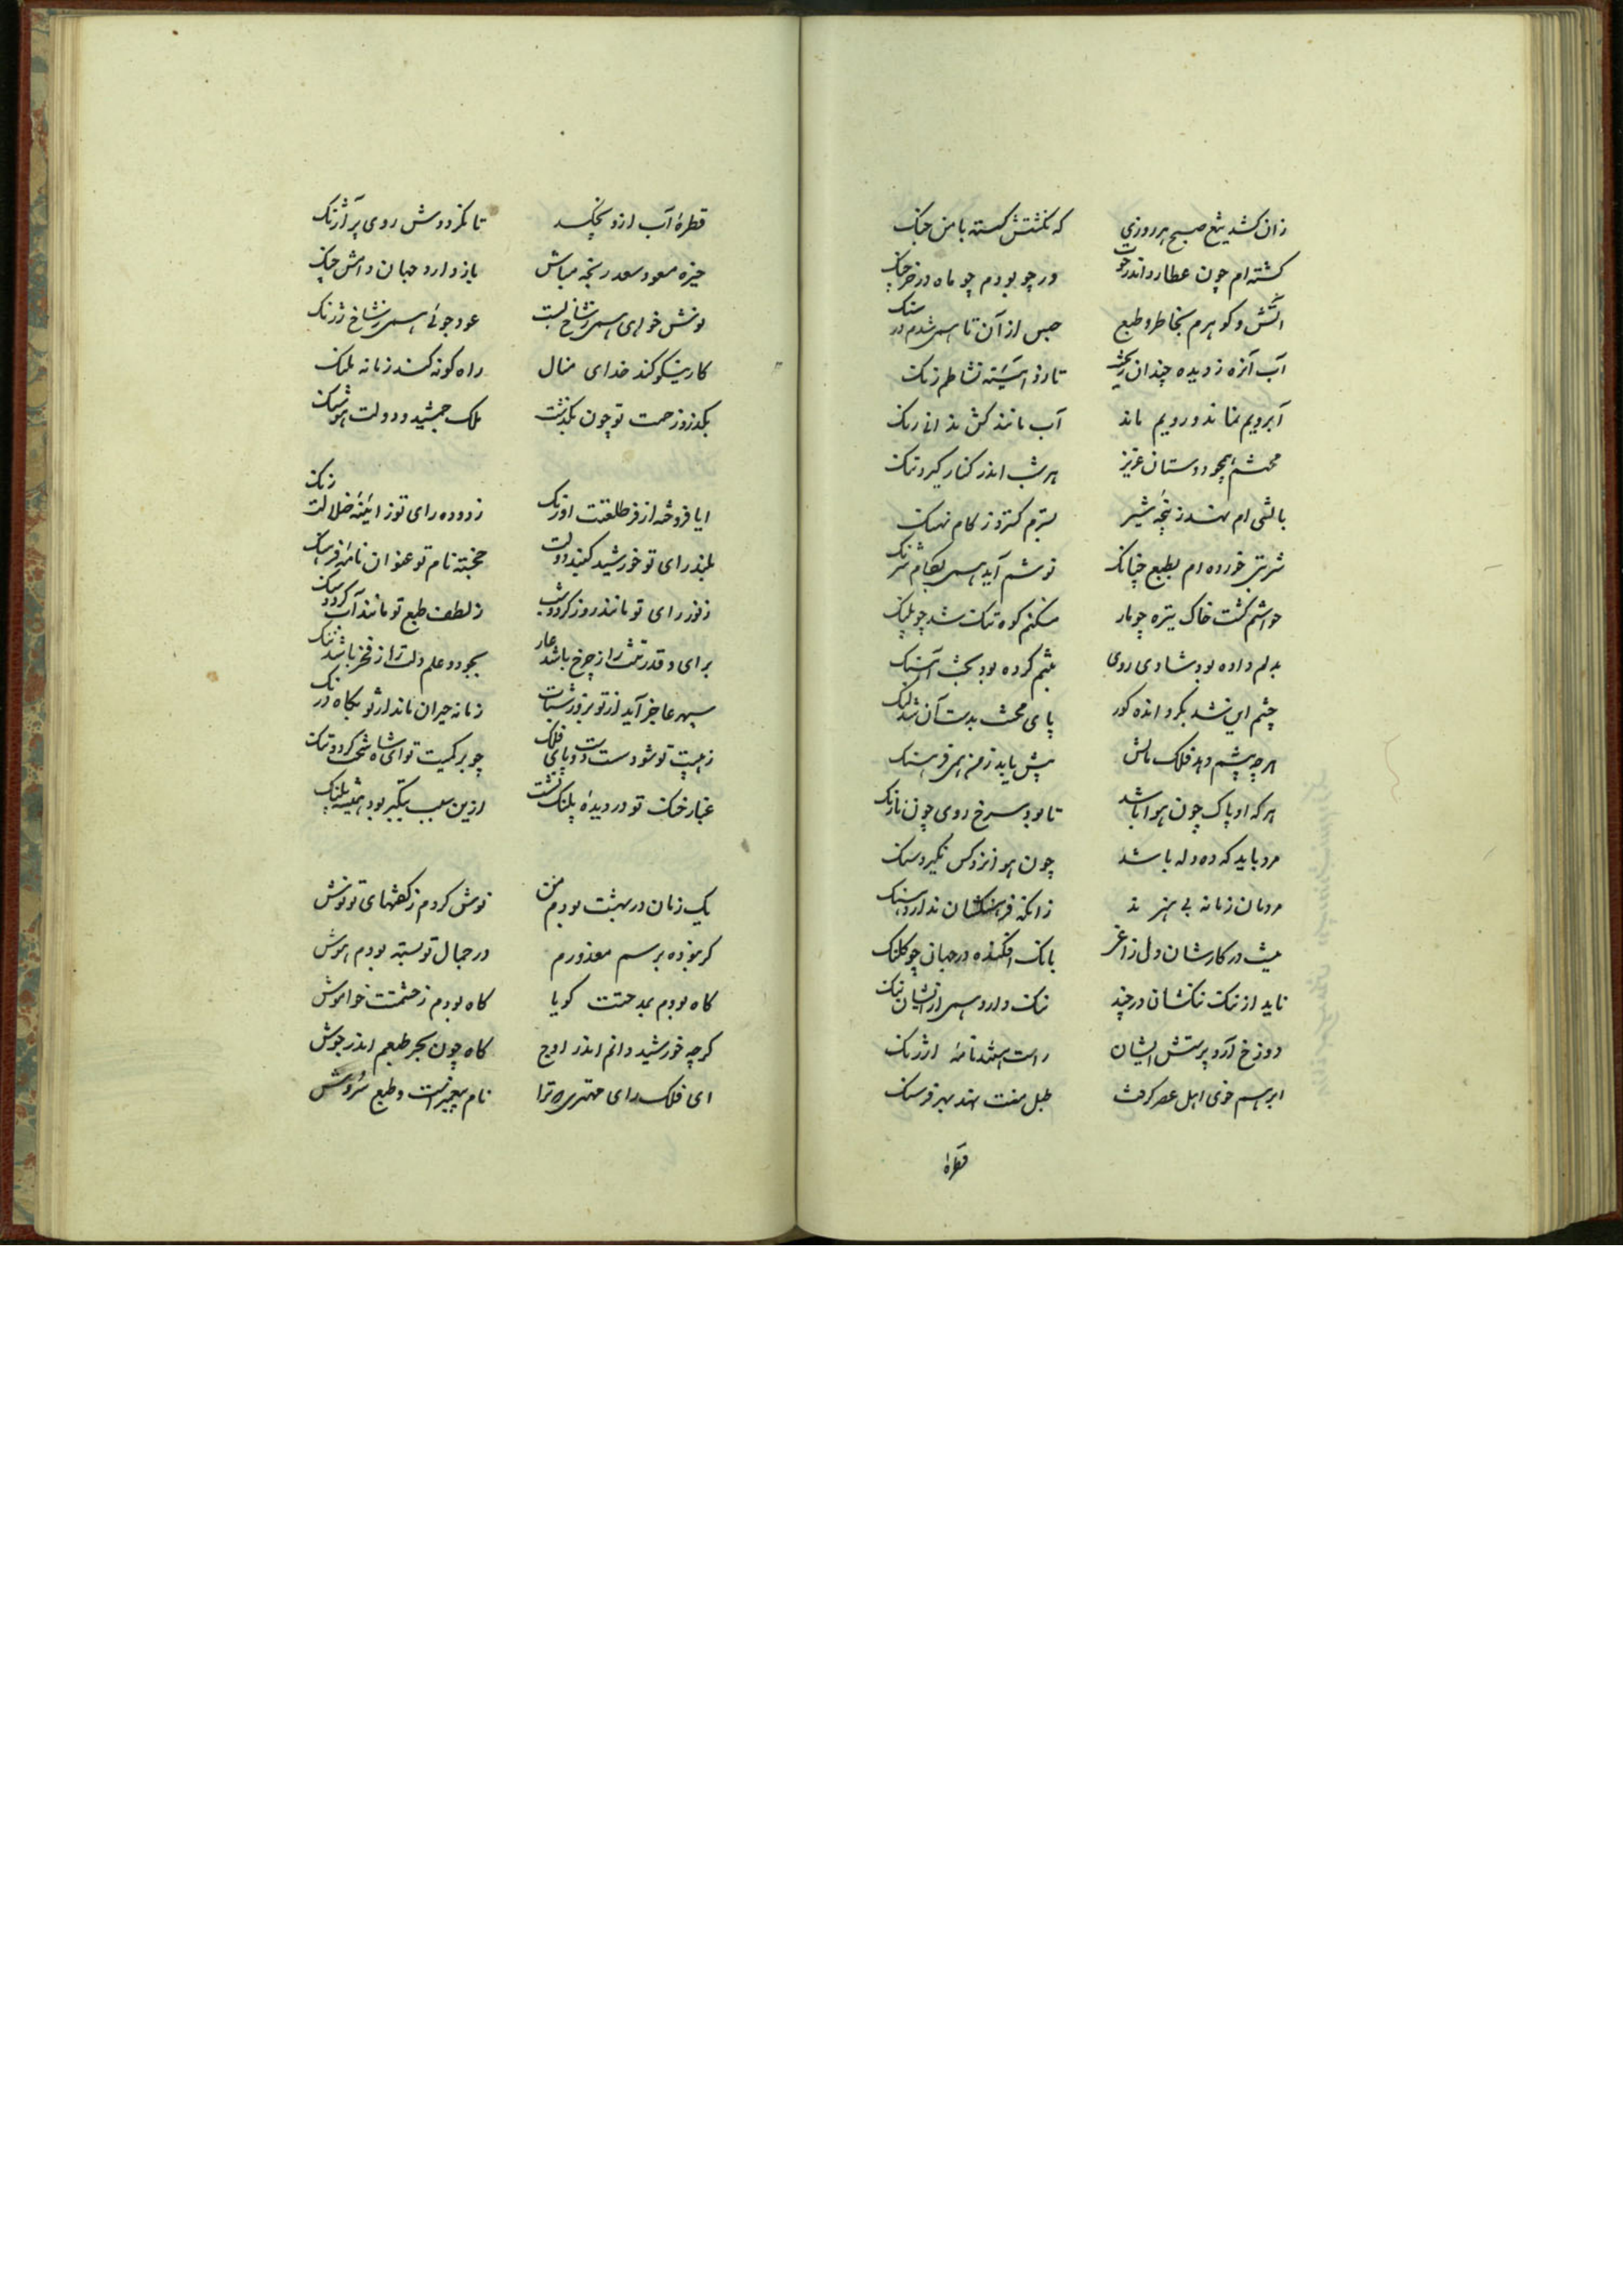 زان کشد تیغ صبح هر روزی که نکشتش کسته با من جنک
کشته ام چون عطارد اندر حوت ور چو بودم چو ماه در خرچنک
آتش و کوهرم بخاطر و طبع حبس از آن تا همی شدم در سنک
آب آنزه ز دیده چندان ریخت تا زد آئینه نشاطم زنک
آبرویم نماند و رویم ماند آب مانند کش نداند رنک
محنتم همچو دوستان عزیز هر شب اندر کنار کیرد تنک
بالشی ام نهند ز پنجه شیر بسترم کسترد ز کام نهنک
شربتی خورده ام بطبع چنانک نوشم آید همی بکام شرنک
حواشم کشت خاک تیره چو مار مسکنم کوه تنک شد چو پلنک
بدلم داده بود شادی روی بتنم کرده بود بخت آهنک
چشم این شد بکرد انده کور پای بخت بدست آن شد لنک
هر چه پیشم دهد فلک مالش پیش یابد ز من همی فرهنک
هر که او پاک چون هوا باشد تا بود سرخ روی چون نارنک
مرد باید که ده دله باشد چون هوا نزد کس نکیرد سنک
مردمان زمانه بی هنرند زانکه فرهنکشان ندارد هنک
نیست در کارشان دل زاغی بانک افکنده در جهان چو کلنک
ناید از ننک ننکشان در چند ننک دارد همی ازیشان ننک
دوزخ آرد پرستش ایشان راست هستند نامه ارژنک
ابر هم خوی اهل عصر کرفت طبل مفت نهد بهر فرسنک
قطرهٔ
قطرهٔ آب ازو نچکد تا نکرددش روی پر آژنک
خیره مسعود سعد رنجه مباش باز دارد جهان دامش چنک
نوش خواهی همی ز شاخ کبست عود جوئی همی ز شاخ زرنک
کار نیکو کند خدای منال راه کوته کند زمانه ملنک
بکدرد زحمت تو چون بکذشت ملک جمشید و دولت هوشنک
ایا فروخته از فر طلعتت اورنک زدوده رای تو ز آئینه ضلالت زنک
بلند رای تو خورشید کنبد دولت خجسته نام تو عنوان نامه فرهنک
ز نور رای تو مانند روز کردد شب ز لطف طبع تو مانند آب کردد سنک
برای و قدرتت را ز چرخ باشد عار بجود و علم دلت را ز فخر باشد ننک
سپهر عاجز آید از تو بروز شتاب زمانه حیران ماند از تو بکاه درنک
ز هیبت تو شود سست دست و پای فلک چو بر کمیت تو ای شاه سخت کردد تنک
غبار خنک تو در دیدهٔ پلنک نشست ازین سبب بتکبر بود همیشه پلنک
یک زمان در بهشت بودم من نوش کردم ز کفتهای تو نوش
کر نبوده برسم معذورم در جمال تو بسته بودم هوش
کاه بودم بمدحتت کویا کاه بودم ز حشمتت خاموش
کرچه خورشید دانم اندر اوج کاه چون بحر طبعم اندر جوش
ای فلک رای مهتری ترا نام پیغمبرانست و طبع سروش